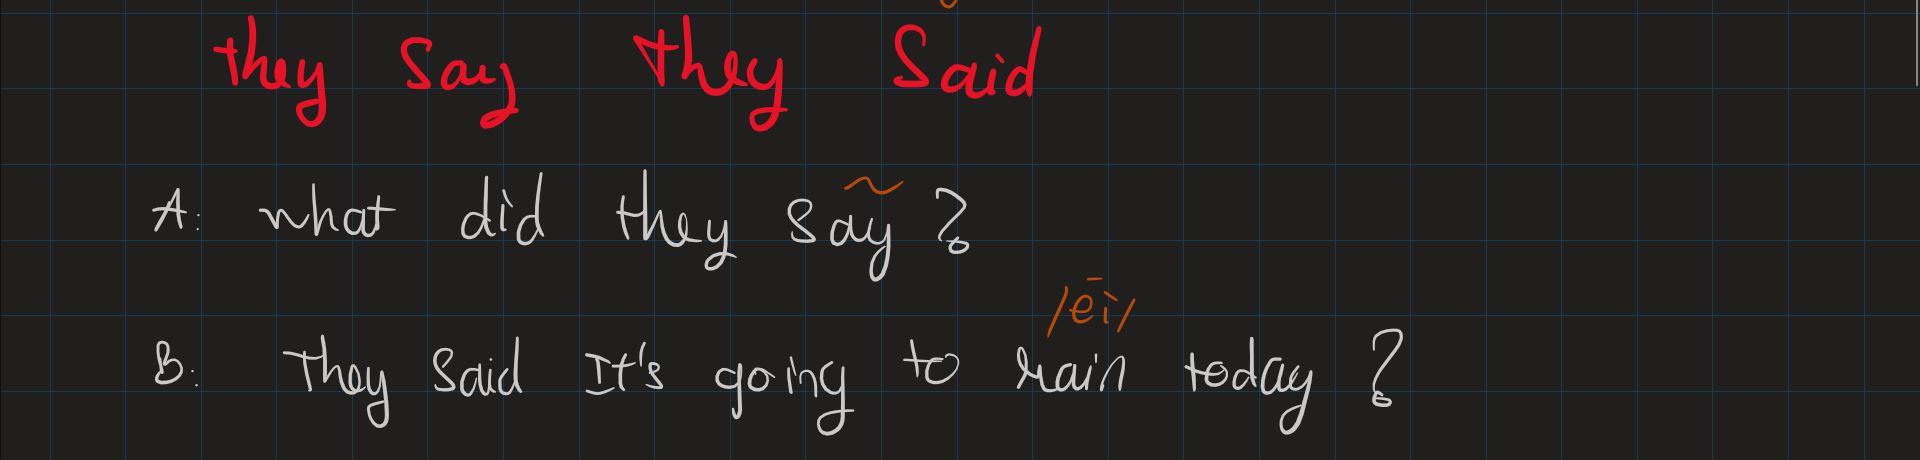 they say they said
A: what did they say ?
/ēi/
B: They said It's going to rain today ?